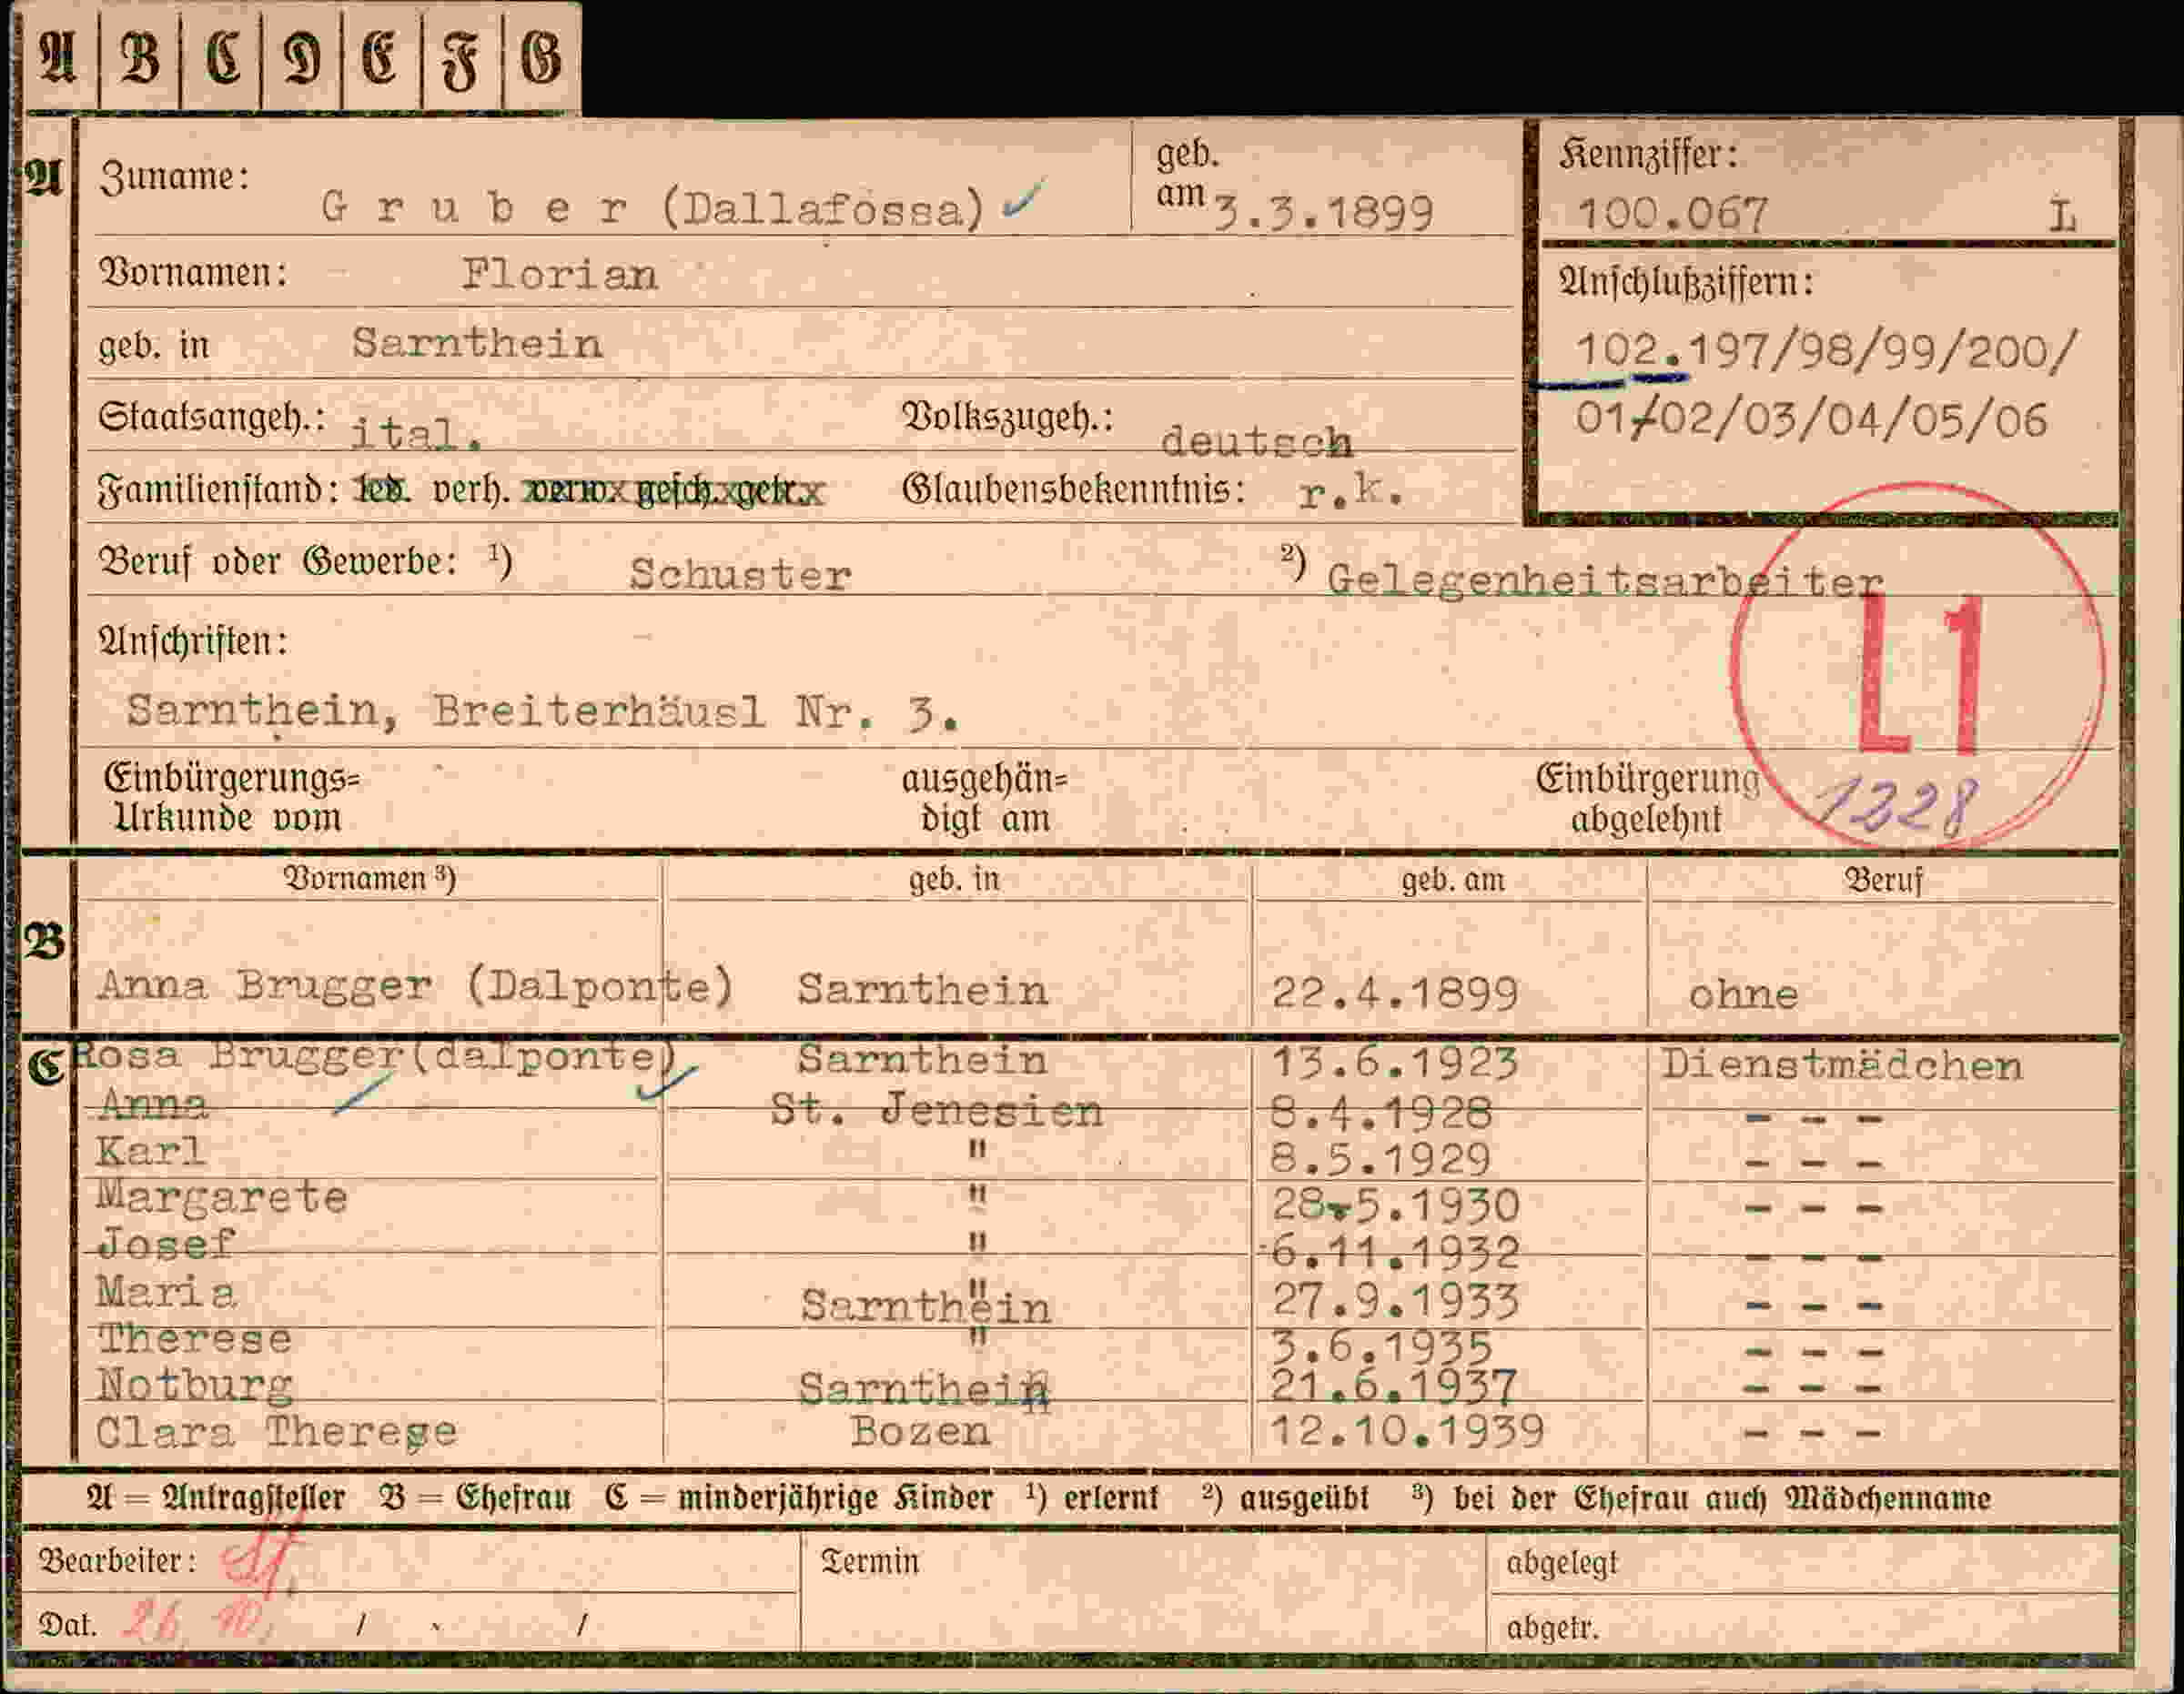 A B C D E F G
A Zuname: Gruber (Dallafossa) ✓ geb. am 3.3.1899
Kennziffer:
100.067 L
Vornamen: Florian
Anschlußziffern:
geb. in Sarnthein
102.197/98/99/200/
01/02/03/04/05/06
Staatsangeh.: ital. Volkszugeh.: deutsch
Familienstand: led. verh. verw. gesch. getr. Glaubensbekenntnis: r.k.
Beruf oder Gewerbe: ¹) Schuster ²) Gelegenheitsarbeiter
Anschriften:
L1
Sarnthein, Breiterhäusl Nr. 3.
Einbürgerungs= ausgehän= Einbürgerung
Urkunde vom digt am abgelehnt
1328
Vornamen ³) geb. in geb. am Beruf
B
Anna Brugger (Dalponte) Sarnthein 22.4.1899 ohne
C Rosa Brugger(dalponte) Sarnthein 13.6.1923 Dienstmädchen
Anna St. Jenesien 8.4.1928 - - -
Karl " 8.5.1929 - - -
Margarete " 28.5.1930 - - -
Josef " 6.11.1932 - - -
Maria Sarnthein 27.9.1933 - - -
Therese " 3.6.1935 - - -
Notburg Sarnthein 21.6.1937 - - -
Clara Therese Bozen 12.10.1939 - - -
A = Antragsteller B = Ehefrau C = minderjährige Kinder ¹) erlernt ²) ausgeübt ³) bei der Ehefrau auch Mädchenname
Bearbeiter: Termin abgelegt
Dat. 26.10. / / abgetr.